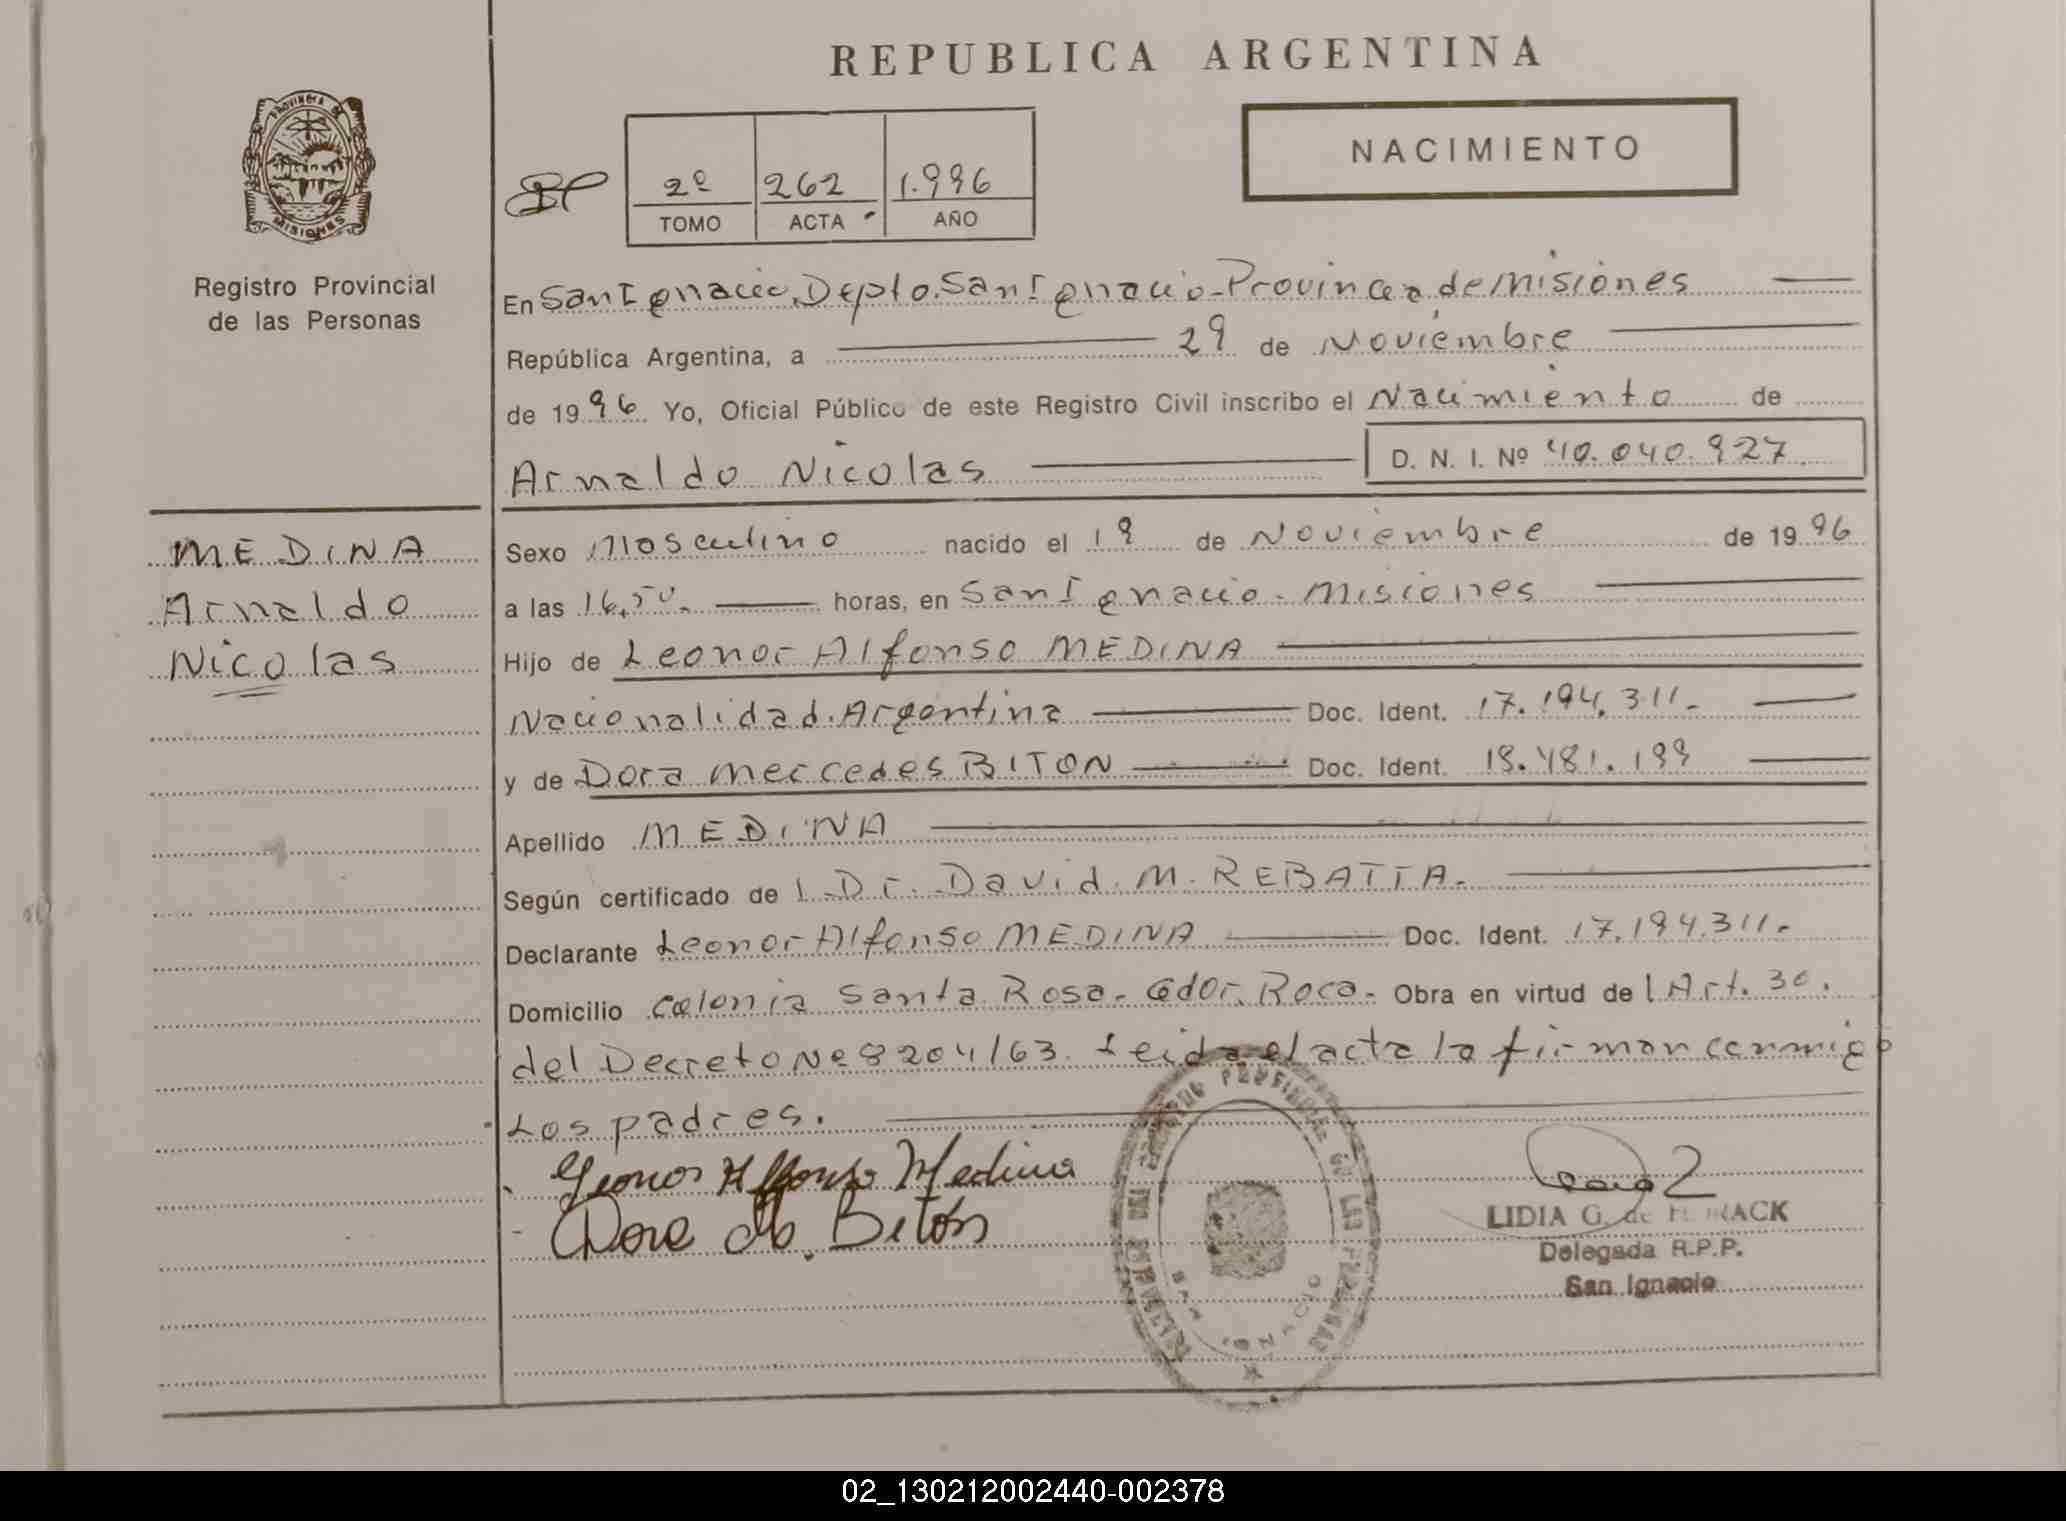 REPUBLICA ARGENTINA
PROVINCIA DE
MISIONES
Registro Provincial
de las Personas
2º 262 1.996
TOMO ACTA AÑO
NACIMIENTO
En San Ignacio, Depto. San Ignacio - Provincia de Misiones
República Argentina, a 29 de Noviembre
de 1996 Yo, Oficial Público de este Registro Civil inscribo el Nacimiento de
Arnaldo Nicolas D. N. I. Nº 40.040.927
MEDINA
Arnaldo
Nicolas
Sexo Masculino nacido el 19 de Noviembre de 1996
a las 16,50. horas, en San Ignacio - Misiones
Hijo de Leonor Alfonso MEDINA
Nacionalidad Argentina Doc. Ident. 17.194.311.-
y de Dora Mercedes BITON Doc. Ident. 18.481.199
Apellido MEDINA
Según certificado de l Dr. David M. REBATTA.-
Declarante Leonor Alfonso MEDINA Doc. Ident. 17.194.311.-
Domicilio Colonia Santa Rosa - Gdor. Roca - Obra en virtud de l Art. 30.
del Decreto Nº 8204/63. Leida el acta la firman conmigo
Los padres.
Leonor Alfonso Medina
Dora M. Biton
LIDIA G. de
Delegada R.P.P.
San Ignacio
02_130212002440-002378